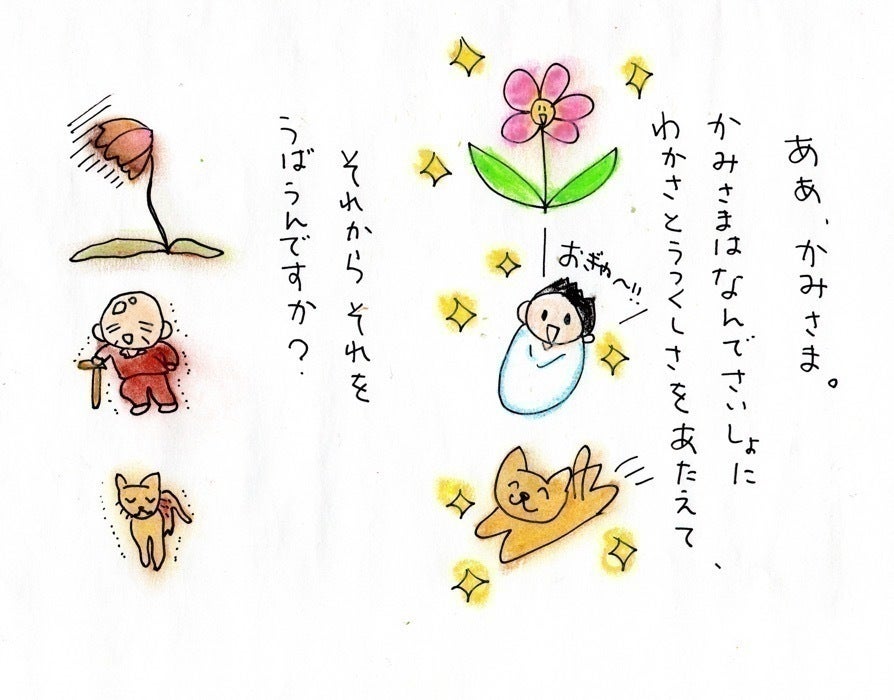 ああ、かみさま。
かみさまはなんでさいしょに
わかさとうつくしさをあたえて、
おぎゃ～!!
それから それを
うばうんですか？